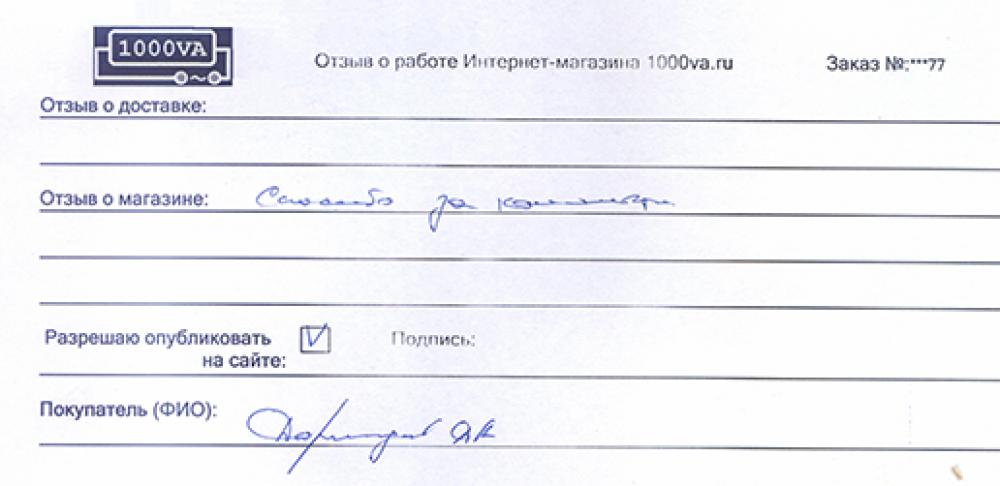 1000VA
Отзыв о работе Интернет-магазина 1000va.ru
Заказ №:***77
Отзыв о доставке:
Отзыв о магазине: Спасибо за
Разрешаю опубликовать
на сайте:
Подпись:
Покупатель (ФИО):